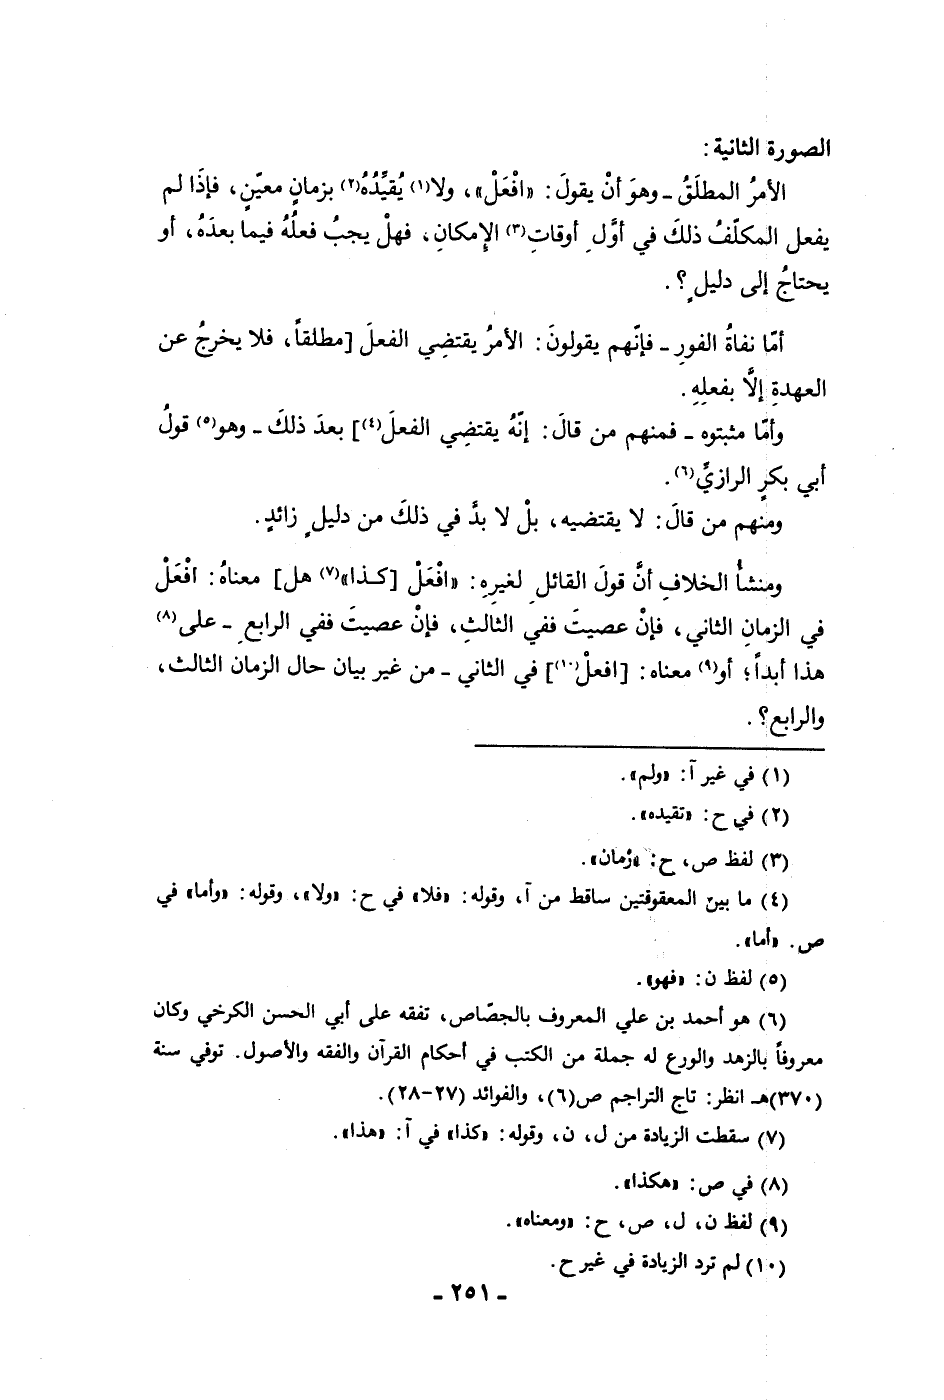 الصورة الثانية:
الأمرُ المطلَقُ ـ وهوَ أنْ يقولَ: «افْعَلْ»، ولا(١) يُقيِّدُهُ(٢) بزمانٍ معيّنٍ، فإذَا لم
يفعل المكلّفُ ذلكَ في أوَّلِ أوقاتِ(٣) الإمكانِ، فهلْ يجبُ فعلُهُ فيما بعدَهُ، أو
يحتاجُ إلى دليلٍ؟.
أمّا نفاةُ الفورِ ـ فإنّهم يقولونَ: الأمرُ يقتضِي الفعلَ [مطلقاً، فلا يخرجُ عن
العهدةِ إلَّا بفعلِهِ.
وأمّا مثبتوه ـ فمنهم من قالَ: إنّهُ يقتضِي الفعلَ(٤)] بعدَ ذلكَ ـ وهو(٥) قولُ
أبي بكرٍ الرازيِّ(٦).
ومنهم من قالَ: لا يقتضيه، بلْ لا بدَّ في ذلكَ من دليلٍ زائدٍ.
ومنشأُ الخلافِ أنَّ قولَ القائلِ لغيرِهِ: «افْعَلْ [كـذا»(٧) هل] معناهُ: افْعَلْ
في الزمانِ الثاني، فإنْ عصيتَ ففي الثالثِ، فإنْ عصيتَ ففي الرابعِ ـ على(٨)
هذا أبداً؛ أو(٩) معناه: [افعلْ(١٠)] في الثاني ـ من غير بيان حال الزمان الثالث،
والرابع؟.
(١) في غير آ: «ولم».
(٢) في ح: «تقيده».
(٣) لفظ ص، ح: «زمان».
(٤) ما بين المعقوفتين ساقط من آ، وقوله: «فلا» في ح: «ولا»، وقوله: «وأما» في
ص. «أما».
(٥) لفظ ن: «فهو».
(٦) هو أحمد بن علي المعروف بالجصّاص، تفقه على أبي الحسن الكرخي وكان
معروفاً بالزهد والورع له جملة من الكتب في أحكام القرآن والفقه والأصول. توفي سنة
(٣٧٠)هـ انظر: تاج التراجم ص(٦)، والفوائد (٢٧-٢٨).
(٧) سقطت الزيادة من ل، ن، وقوله: «كذا» في آ: «هذا».
(٨) في ص: «هكذا».
(٩) لفظ ن، ل، ص، ح: «ومعناه».
(١٠) لم ترد الزيادة في غير ح.
ـ ٢٥١ ـ